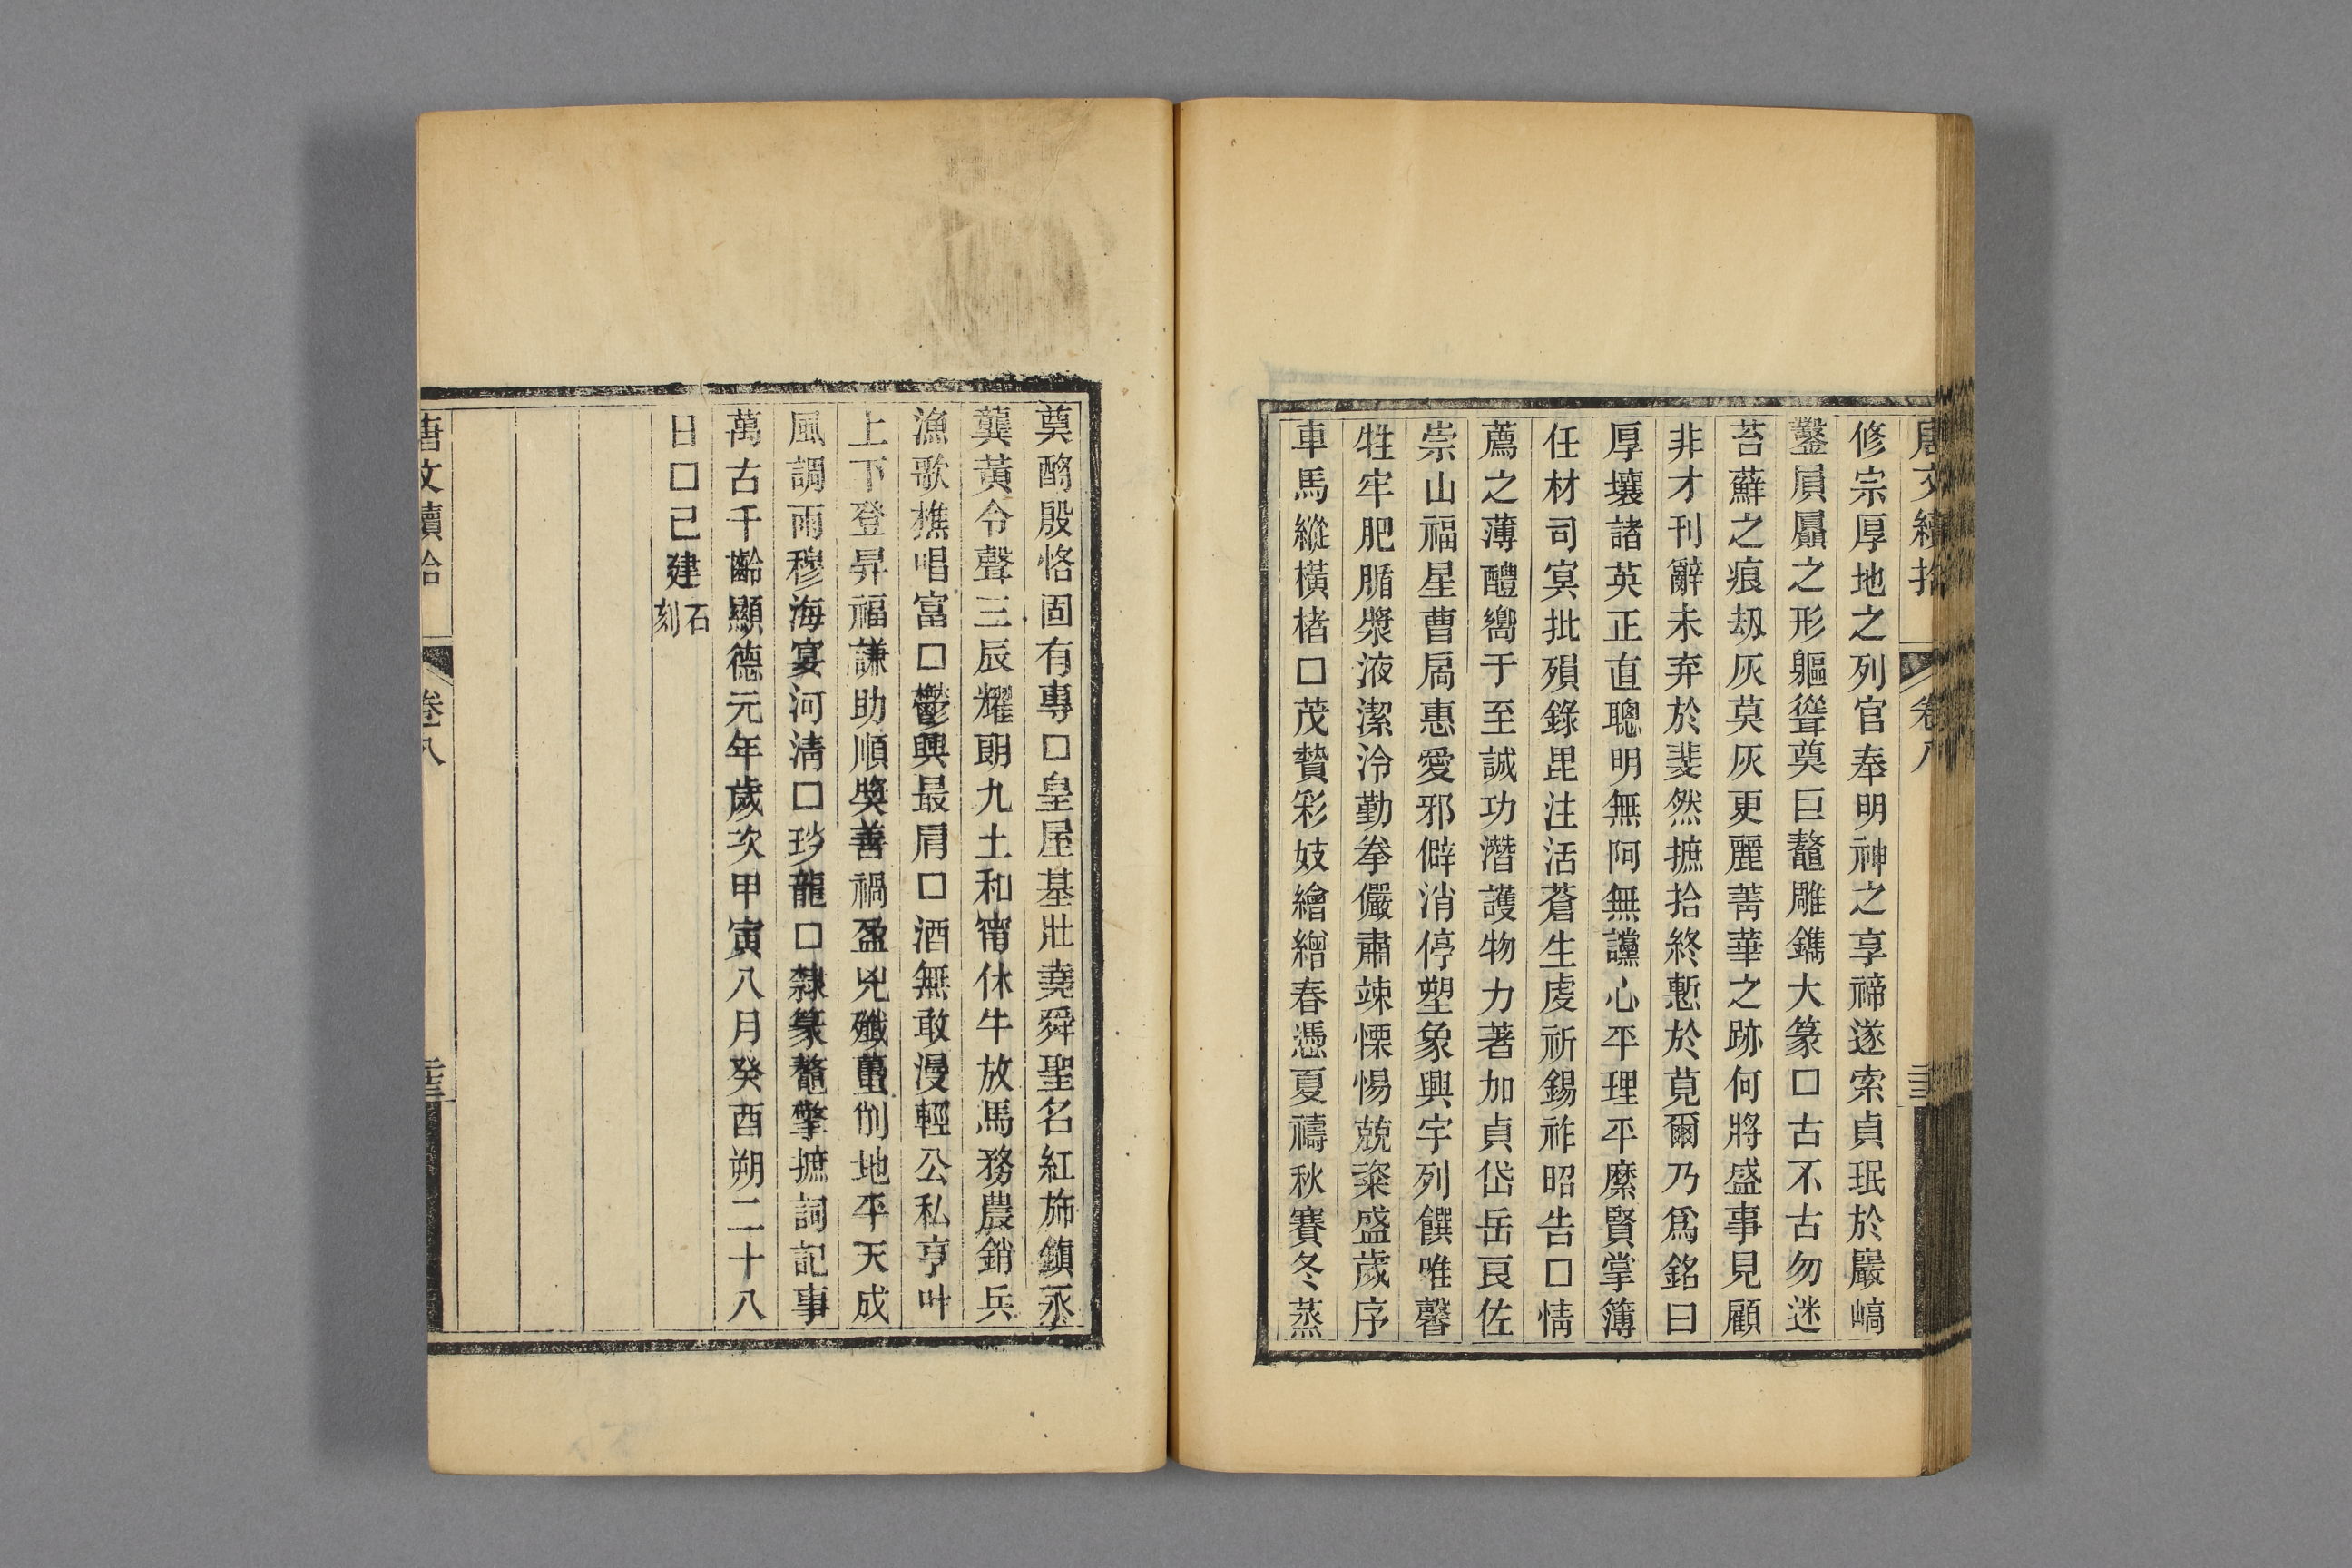 唐文續拾 卷八
修宗厚地之列官奉明神之享禘遂索貞珉於巖嵪
鑿屓屭之形軀聳奠巨鼇雕鐫大篆□古不古勿迷
苔蘚之痕刼灰莫灰更麗菁華之跡何將盛事見顧
非才刊辭未弃於斐然摭拾終慙於莧爾乃爲銘曰
厚壤諸英正直聰明無阿無讜心平理平縻賢掌簿
任材司㝠批殞錄毘注活蒼生虔祈錫祚昭告□情
薦之薄醴嚮于至誠功潛護物力著加貞岱岳良佐
崇山福星曹扄惠愛邪僻消停塑象興宇列饌唯馨
牲牢肥腯漿液潔泠勤拳儼肅竦慄惕兢粢盛歲序
車馬縱橫楮□茂贄彩妓繪繒春憑夏禱秋賽冬蒸
奠酹殷恪固有專□皇屋基壯堯舜聖名紅斾鎭丞
龔黃令聲三辰耀朗九土和甯休牛放馬務農銷兵
漁歌樵唱富□鬱興最肩□酒無敢漫輕公私亨叶
上下登昇福謙助順奬善禍盈兇殲蠆刖地平天成
風調雨穆海宴河淸□珎龍□隸篆鼇擎摭詞記事
萬古千齡顯德元年歲次甲寅八月癸酉朔二十八
日□已建石刻
唐文續拾 卷八 三十三